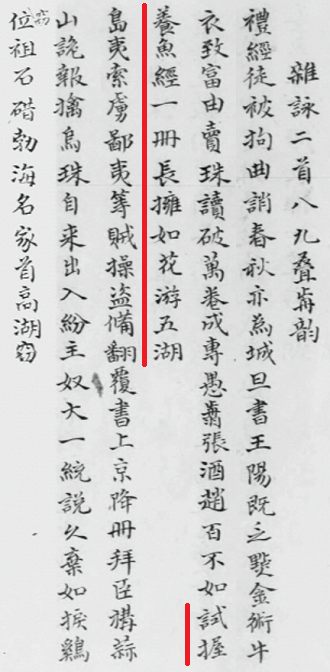 雜詠二首八九叠歬韵
禮經徒被拘曲誚春秋亦為城旦書王陽既乏㸃金術牛
衣致富由賣珠讀破萬卷成專愚翦張酒趙百不如試握
養魚經一冊長擁如花游五湖
島夷索虜鄙夷等賊操盜備翻覆書上京降冊拜臣構蒜
山詭報擒烏珠自来出入紛主奴大一統説久棄如捩鷄
窃位祖石碏勃海名家首高湖窃